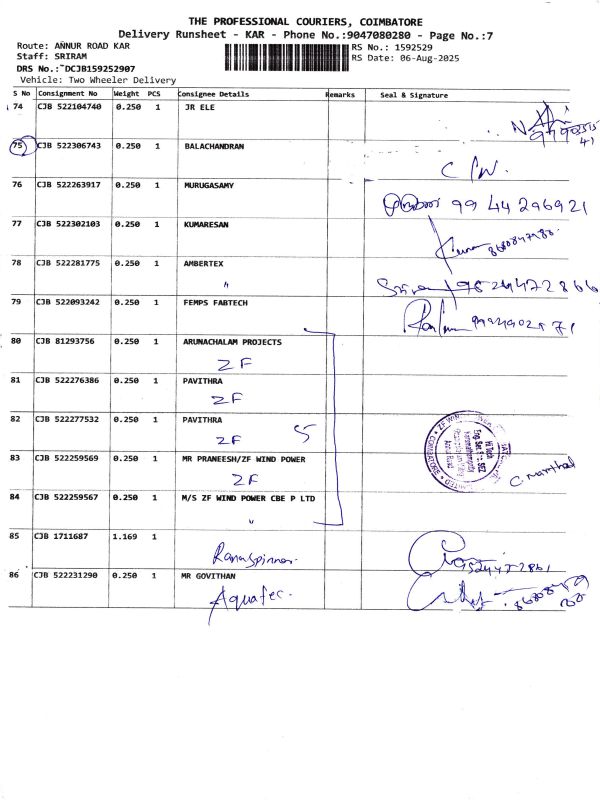 THE PROFESSIONAL COURIERS, COIMBATORE
Delivery Runsheet - KAR - Phone No.:9047080280 - Page No.:7
Route: ANNUR ROAD KAR
RS No.: 1592529
Staff: SRIRAM
RS Date: 06-Aug-2025
DRS No.: DCJB159252907
Vehicle: Two Wheeler Delivery
S No Consignment No Weight PCS Consignee Details Remarks Seal & Signature
74 CJB 522104740 0.250 1 JR ELE
75 CJB 522306743 0.250 1 BALACHANDRAN
76 CJB 522263917 0.250 1 MURUGASAMY
99 44 296921
77 CJB 522302103 0.250 1 KUMARESAN
78 CJB 522281775 0.250 1 AMBERTEX
"
79 CJB 522093242 0.250 1 FEMPS FABTECH
80 CJB 81293756 0.250 1 ARUNACHALAM PROJECTS
ZF
81 CJB 522276386 0.250 1 PAVITHRA
ZF
82 CJB 522277532 0.250 1 PAVITHRA
ZF 5
83 CJB 522259569 0.250 1 MR PRANEESH/ZF WIND POWER
ZF
84 CJB 522259567 0.250 1 M/S ZF WIND POWER CBE P LTD
"
85 CJB 1711687 1.169 1
Ranaspinner
86 CJB 522231290 0.250 1 MR GOVITHAN
Aquatec.